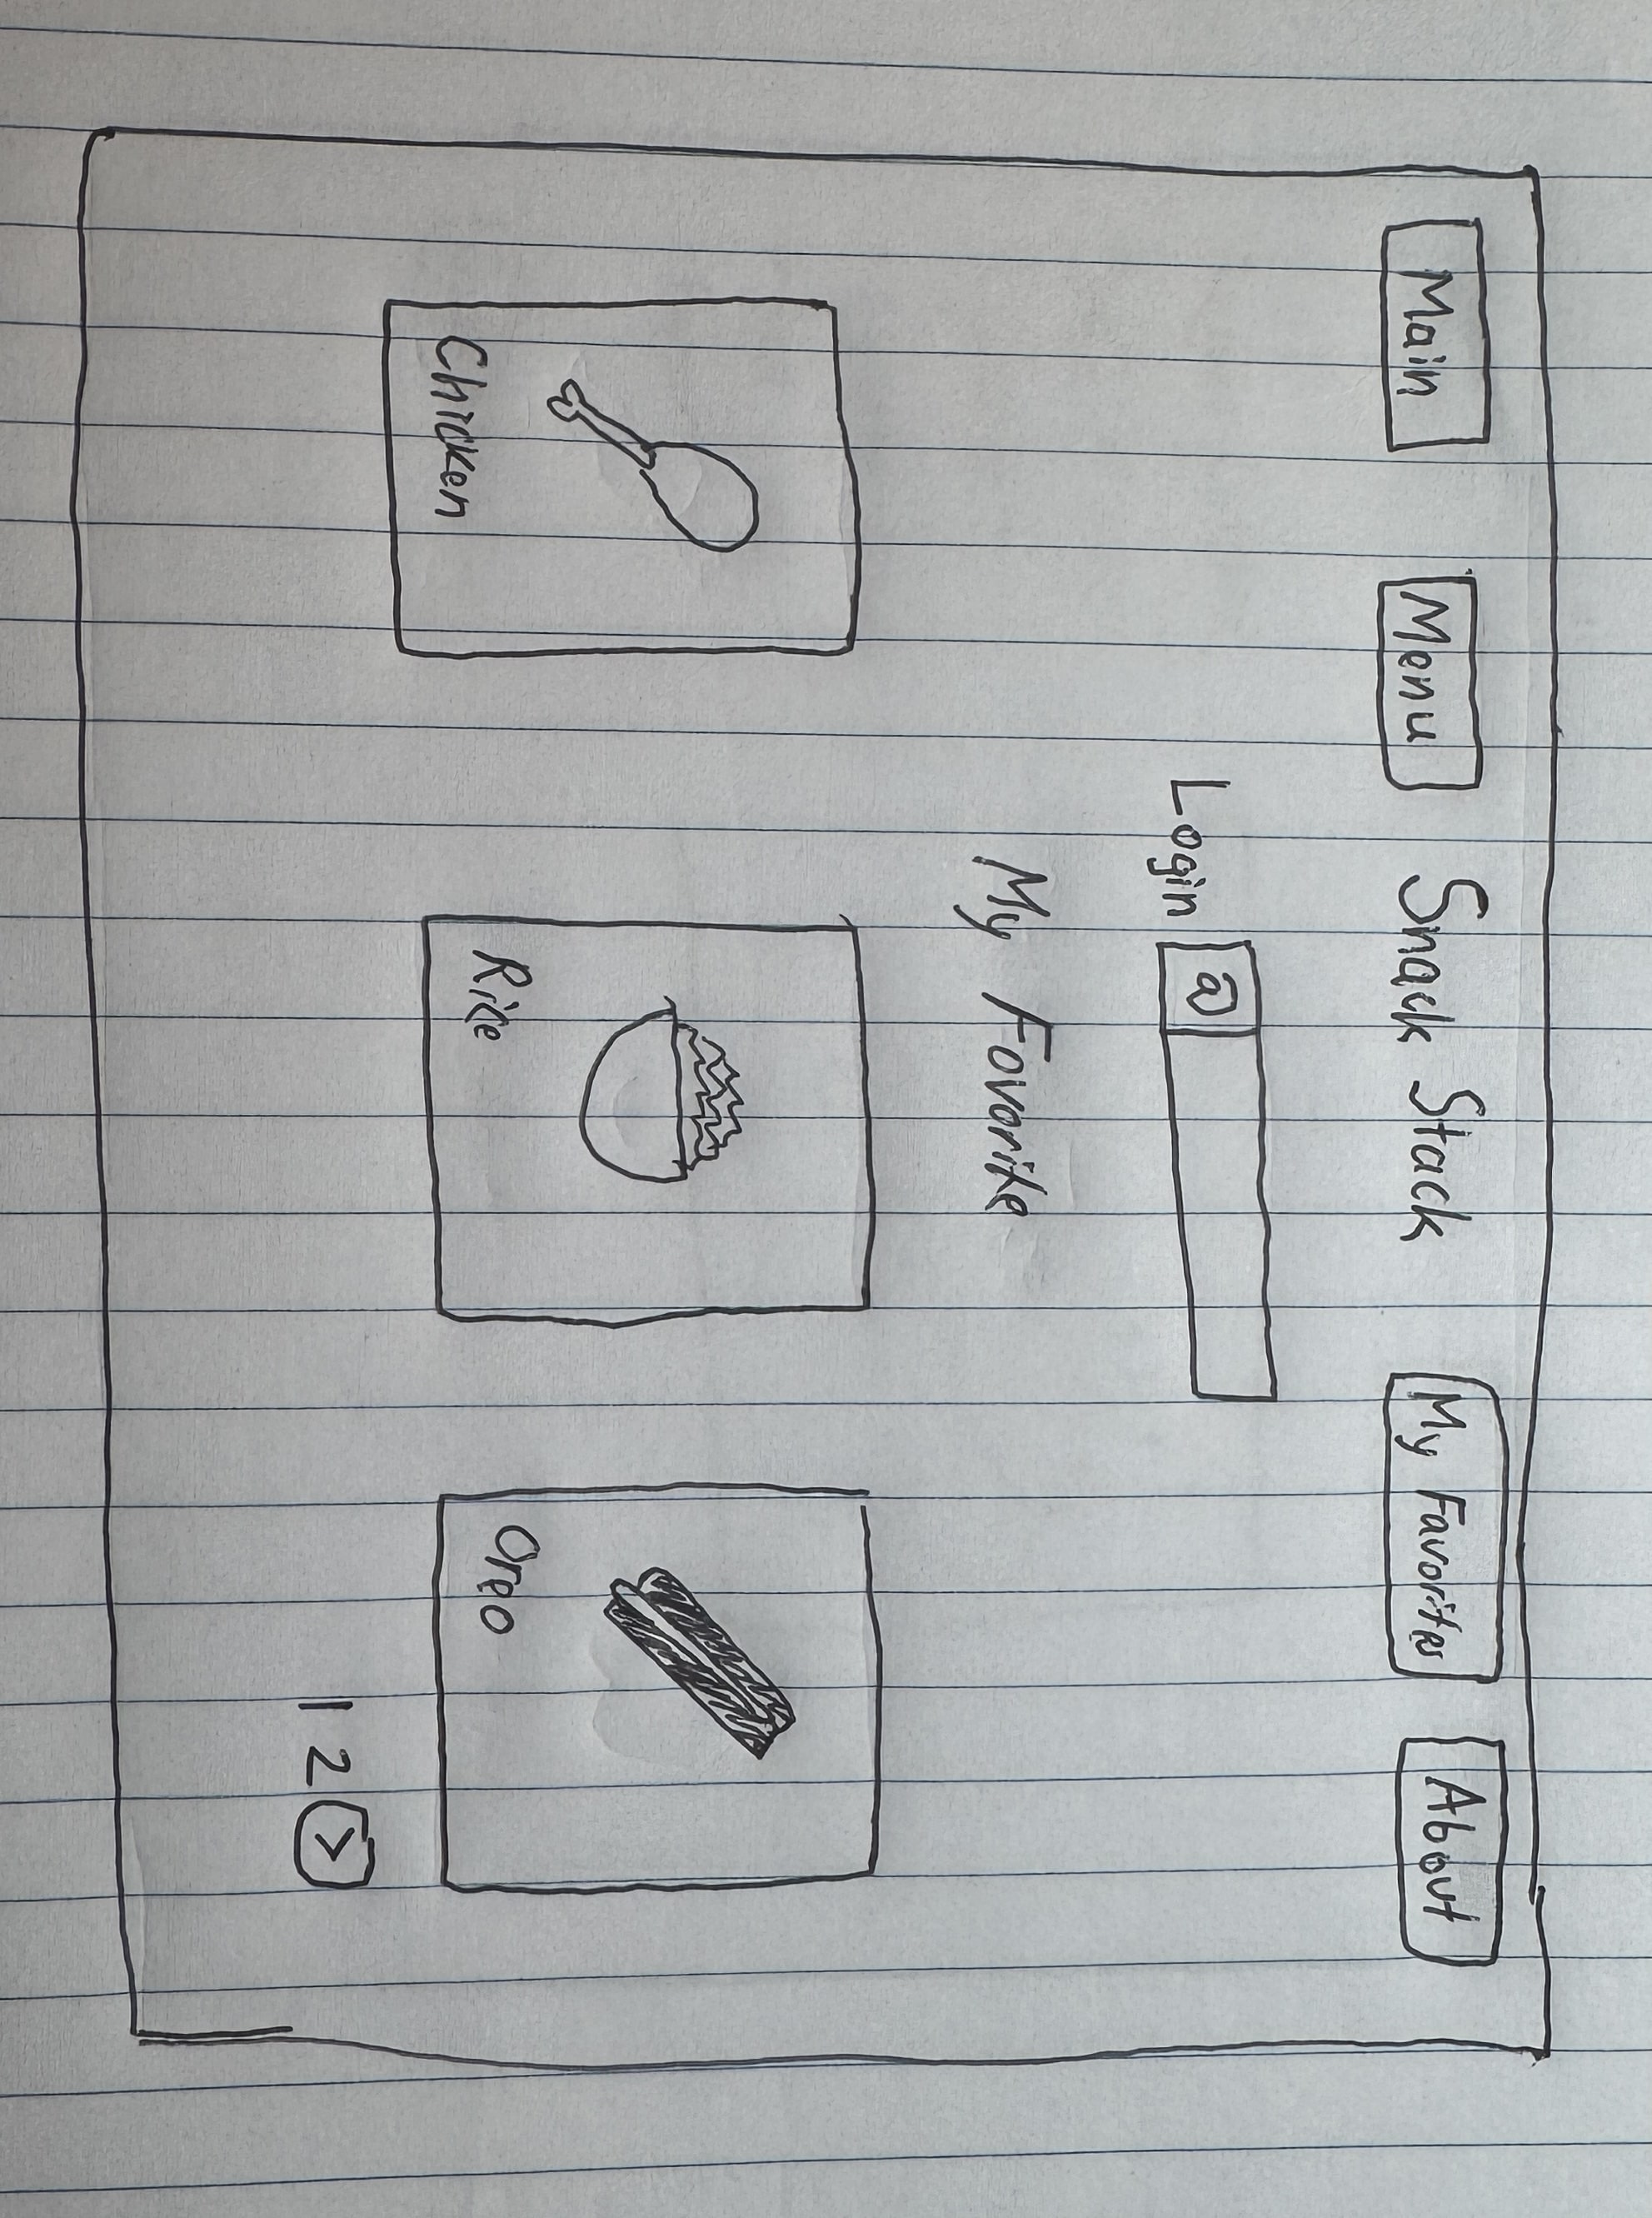 Main Menu Snack Stack My Favorites About
Login @
My Fovorite
Chicken Rice Oreo
1 2 >